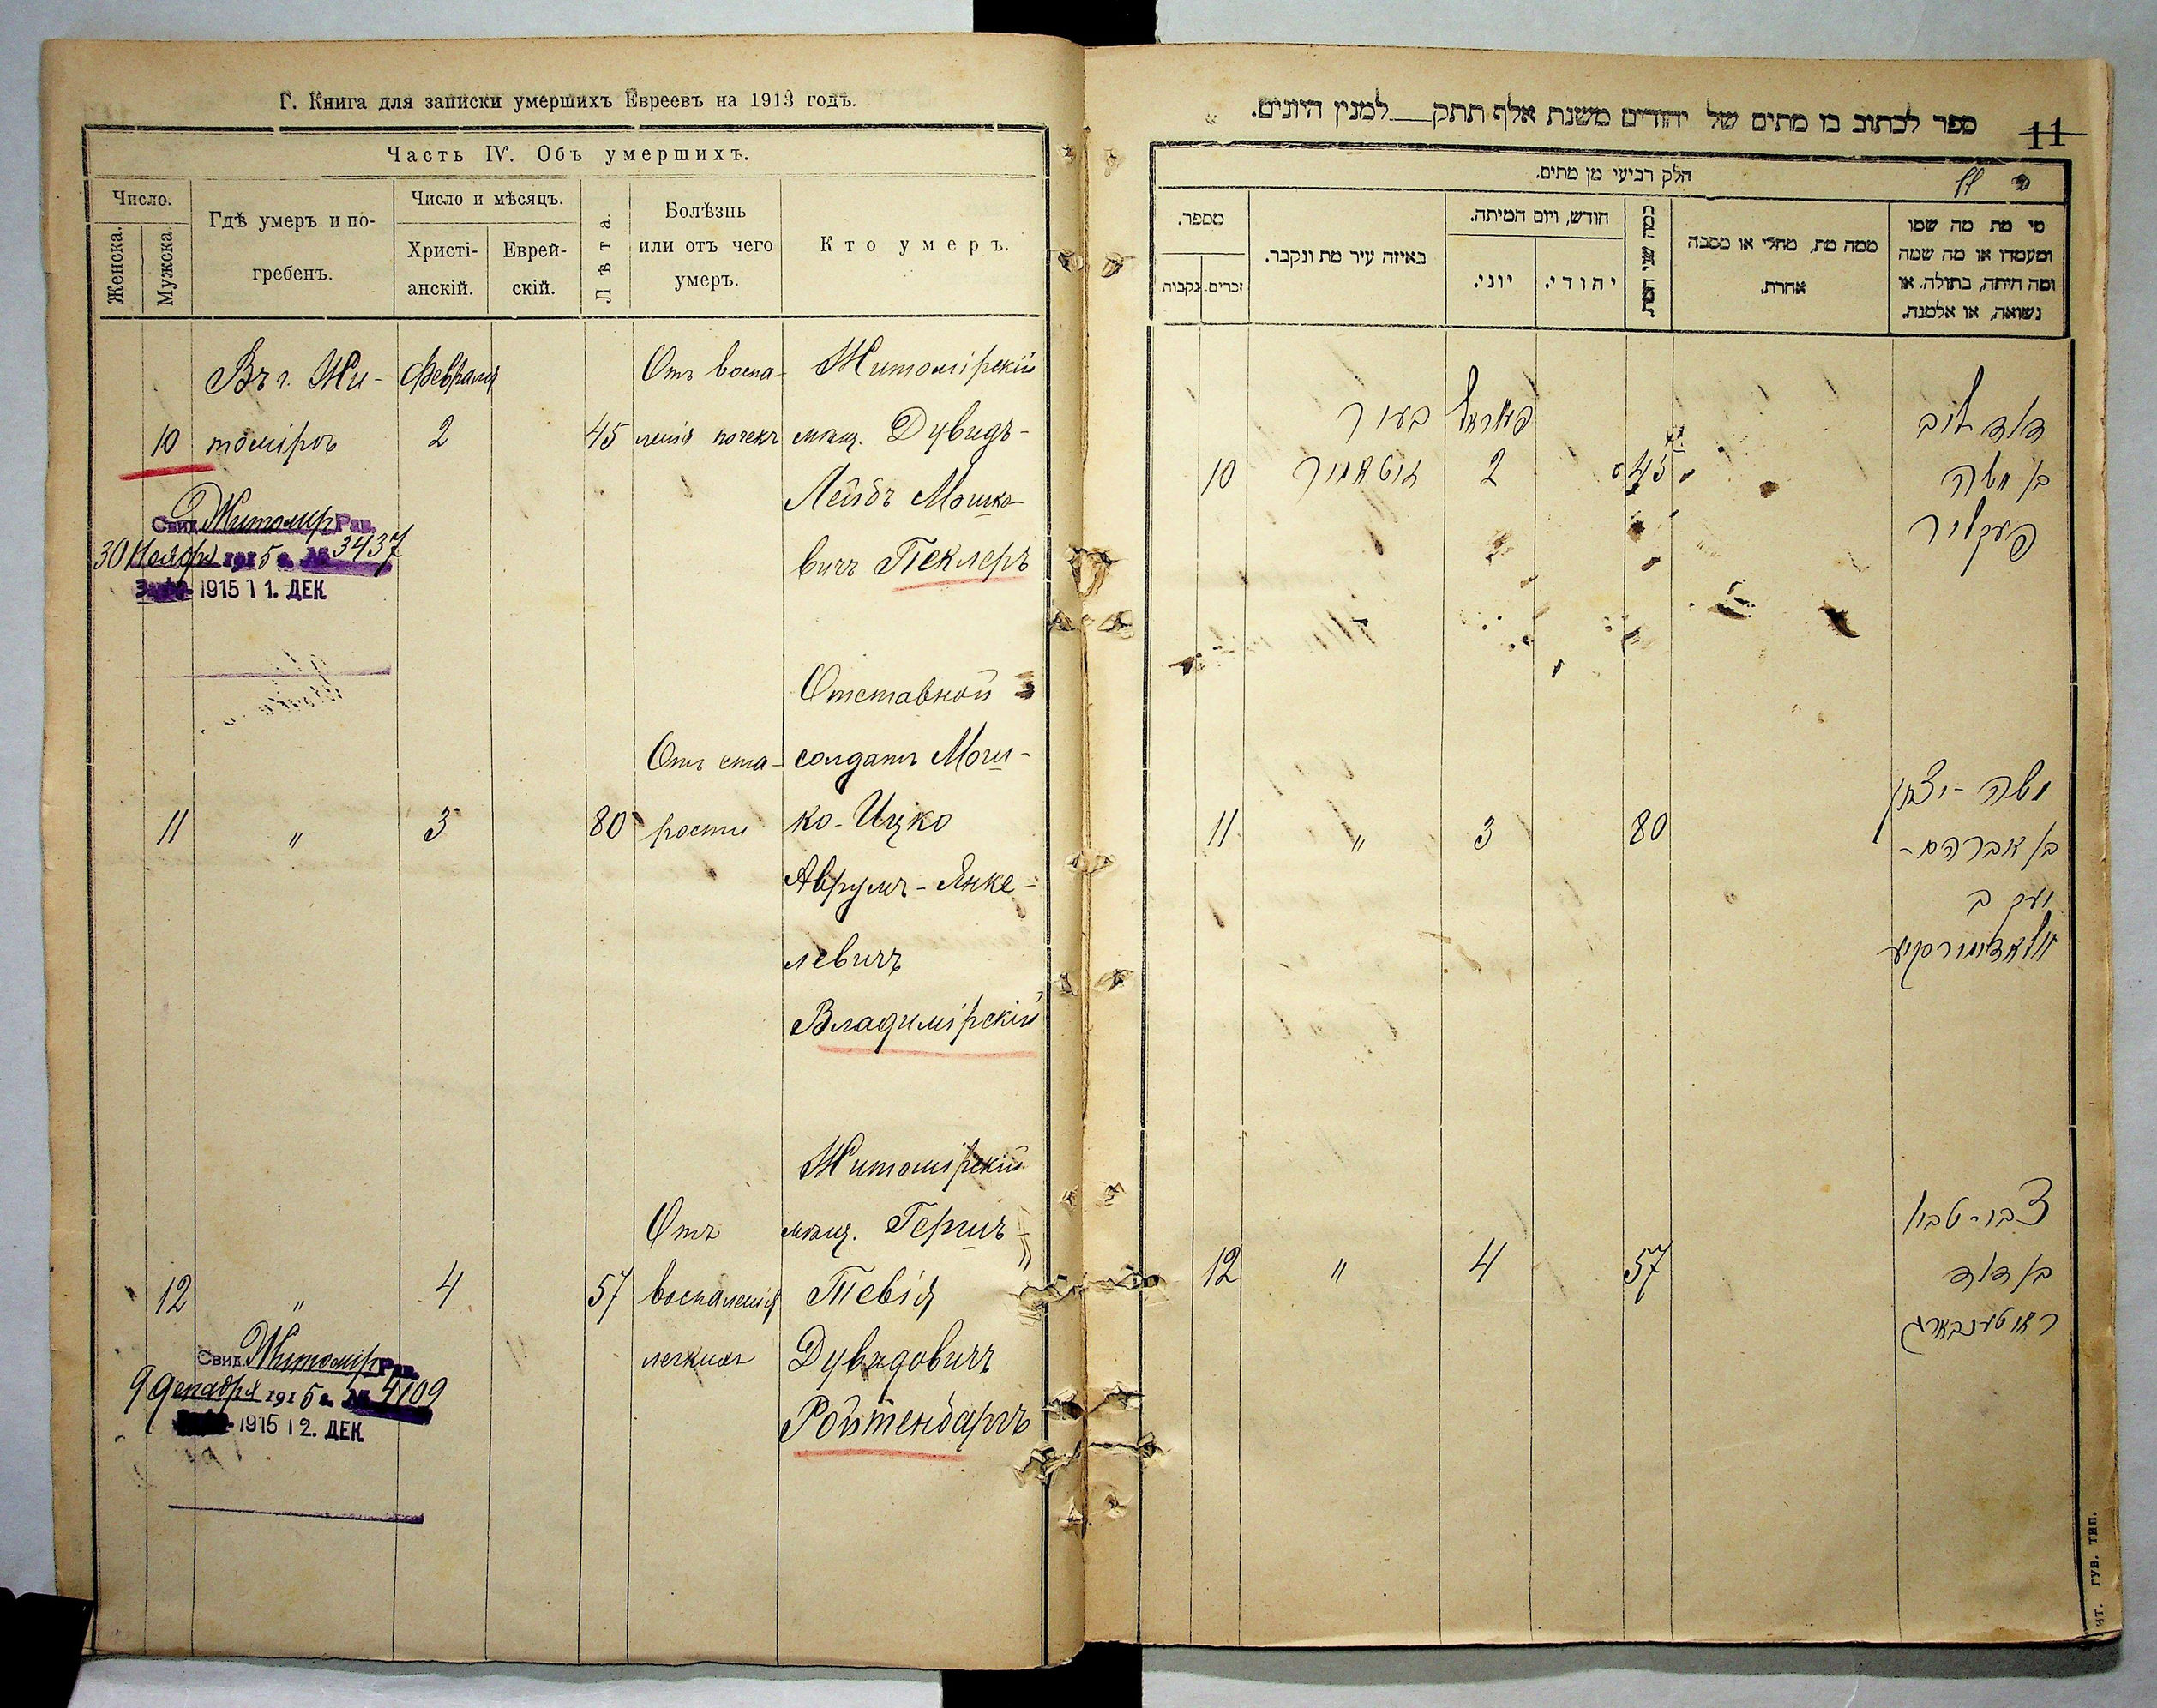 Г. Книга для записки умершихъ Евреевъ на 1913 годъ.
Часть IV. Объ умершихъ.
Число.
Женска.
Мужска.
Гдѣ умеръ и по-
гребенъ.
Число и мѣсяцъ.
Христі-
анскій.
Еврей-
скій.
Лѣта.
Болѣзнь
или отъ чего
умеръ.
Кто умеръ.
Въ г. Жи- Февраля Отъ воспа- Житомірскій
10 томірѣ 2 45 ленія почекъ мѣщ. Дувидъ-
Лейбъ Мошко-
вичъ Пеклеръ
Свид. Житомир Рав.
30 Ноября 1915 г. № 3437
1915 11. ДЕК
Отставной
Отъ ста- солдатъ Мош-
11 " 3 80 рости ко-Ицко
Аврумъ-Янке-
левичъ
Владимірскій
Житомірскій
Отъ мѣщ. Гершъ-
12 " 4 57 воспаленія Тевія
легкихъ Дувидовичъ
Ройтенбаргъ
Свид. Житомір Рав.
9 декабря 1915 г. № 4109
1915 12. ДЕК
ספר לכתוב בו מתים של יהודים משנת אלף תתק למנין היונים.
11
חלק רביעי מן מתים.
11
מספר.
זכרים.
נקבות
באיזה עיר מת ונקבר.
חודש, ויום המיתה.
יוני.
יהודי.
כמה שני המת
ממה מת, מחלי או מסבה
אחרת.
מי מת מה שמו
ומעמדו או מה שמה
ומה היתה, בתולה, או
נשואה, או אלמנה.
בעיר
דוד ליב
10 זיטאמיר 2 45 בן משה
פעקליר
משה-יצחק
11 " 3 80 בן אברהם-
יעקב
וולאדימירסקיע
צבי-טביא
12 " 4 57 בן דוד
ראוטענבארג
гув. тип.